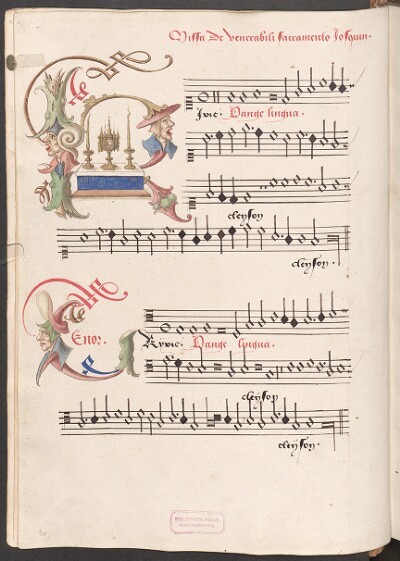 Missa De venerabili sacramento Josquin.
Pange lingua.
eleyson
eleyson.
Enor.
Kyrie. Pange lingua.
eleyson
eleyson.